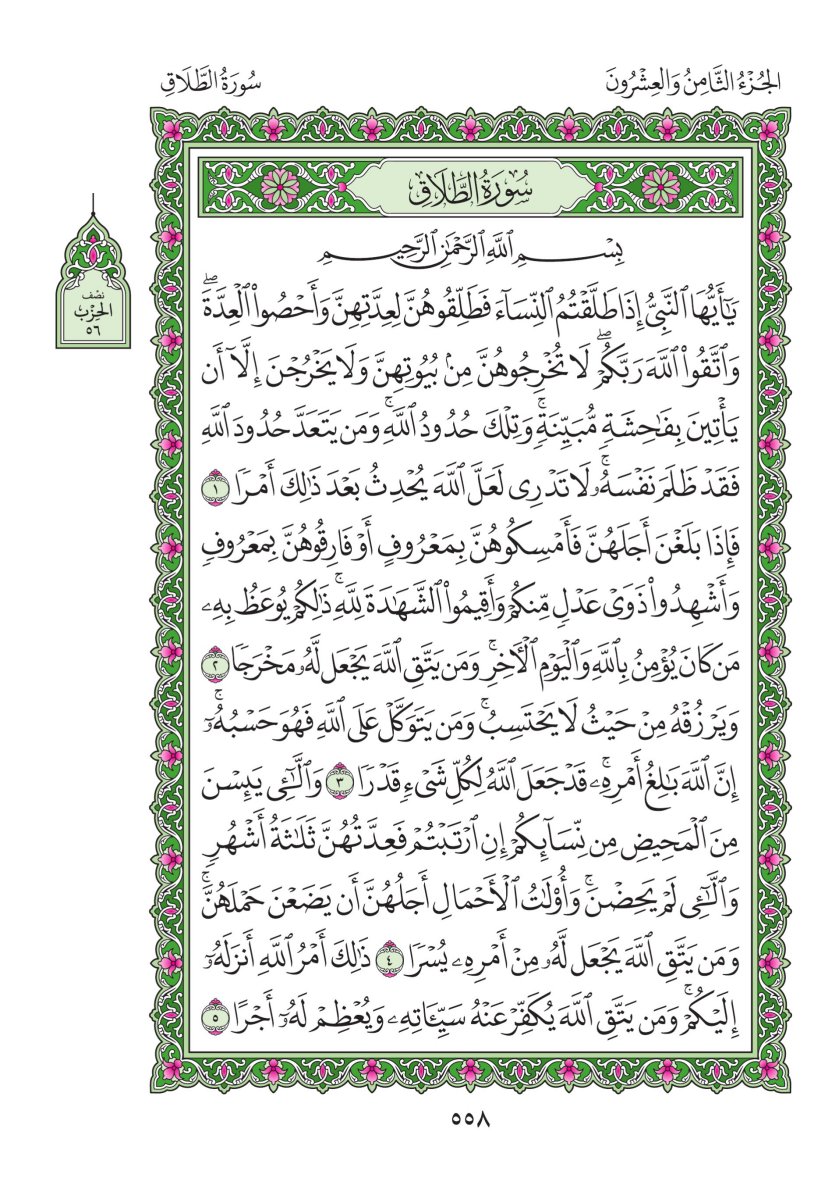 الجُزْءُ الثَّامِنُ وَالعِشْرُونَ
سُورَةُ الطَّلَاقِ
سُورَةُ الطَّلَاقِ
بِسْمِ ٱللَّهِ ٱلرَّحْمَٰنِ ٱلرَّحِيمِ
نصف
الحِزْب
٥٦
يَٰٓأَيُّهَا ٱلنَّبِىُّ إِذَا طَلَّقْتُمُ ٱلنِّسَآءَ فَطَلِّقُوهُنَّ لِعِدَّتِهِنَّ وَأَحْصُوا۟ ٱلْعِدَّةَۖ
وَٱتَّقُوا۟ ٱللَّهَ رَبَّكُمْۖ لَا تُخْرِجُوهُنَّ مِنۢ بُيُوتِهِنَّ وَلَا يَخْرُجْنَ إِلَّآ أَن
يَأْتِينَ بِفَٰحِشَةٍ مُّبَيِّنَةٍۚ وَتِلْكَ حُدُودُ ٱللَّهِۚ وَمَن يَتَعَدَّ حُدُودَ ٱللَّهِ
فَقَدْ ظَلَمَ نَفْسَهُۥۚ لَا تَدْرِى لَعَلَّ ٱللَّهَ يُحْدِثُ بَعْدَ ذَٰلِكَ أَمْرًا ١
فَإِذَا بَلَغْنَ أَجَلَهُنَّ فَأَمْسِكُوهُنَّ بِمَعْرُوفٍ أَوْ فَارِقُوهُنَّ بِمَعْرُوفٍ
وَأَشْهِدُوا۟ ذَوَىْ عَدْلٍ مِّنكُمْ وَأَقِيمُوا۟ ٱلشَّهَٰدَةَ لِلَّهِۚ ذَٰلِكُمْ يُوعَظُ بِهِۦ
مَن كَانَ يُؤْمِنُ بِٱللَّهِ وَٱلْيَوْمِ ٱلْءَاخِرِۚ وَمَن يَتَّقِ ٱللَّهَ يَجْعَل لَّهُۥ مَخْرَجًا ٢
وَيَرْزُقْهُ مِنْ حَيْثُ لَا يَحْتَسِبُۚ وَمَن يَتَوَكَّلْ عَلَى ٱللَّهِ فَهُوَ حَسْبُهُۥٓۚ
إِنَّ ٱللَّهَ بَٰلِغُ أَمْرِهِۦۚ قَدْ جَعَلَ ٱللَّهُ لِكُلِّ شَىْءٍ قَدْرًا ٣ وَٱلَّٰٓـِٔى يَئِسْنَ
مِنَ ٱلْمَحِيضِ مِن نِّسَآئِكُمْ إِنِ ٱرْتَبْتُمْ فَعِدَّتُهُنَّ ثَلَٰثَةُ أَشْهُرٍ
وَٱلَّٰٓـِٔى لَمْ يَحِضْنَۚ وَأُو۟لَٰتُ ٱلْأَحْمَالِ أَجَلُهُنَّ أَن يَضَعْنَ حَمْلَهُنَّۚ
وَمَن يَتَّقِ ٱللَّهَ يَجْعَل لَّهُۥ مِنْ أَمْرِهِۦ يُسْرًا ٤ ذَٰلِكَ أَمْرُ ٱللَّهِ أَنزَلَهُۥٓ
إِلَيْكُمْۚ وَمَن يَتَّقِ ٱللَّهَ يُكَفِّرْ عَنْهُ سَيِّـَٔاتِهِۦ وَيُعْظِمْ لَهُۥٓ أَجْرًا ٥
٥٥٨